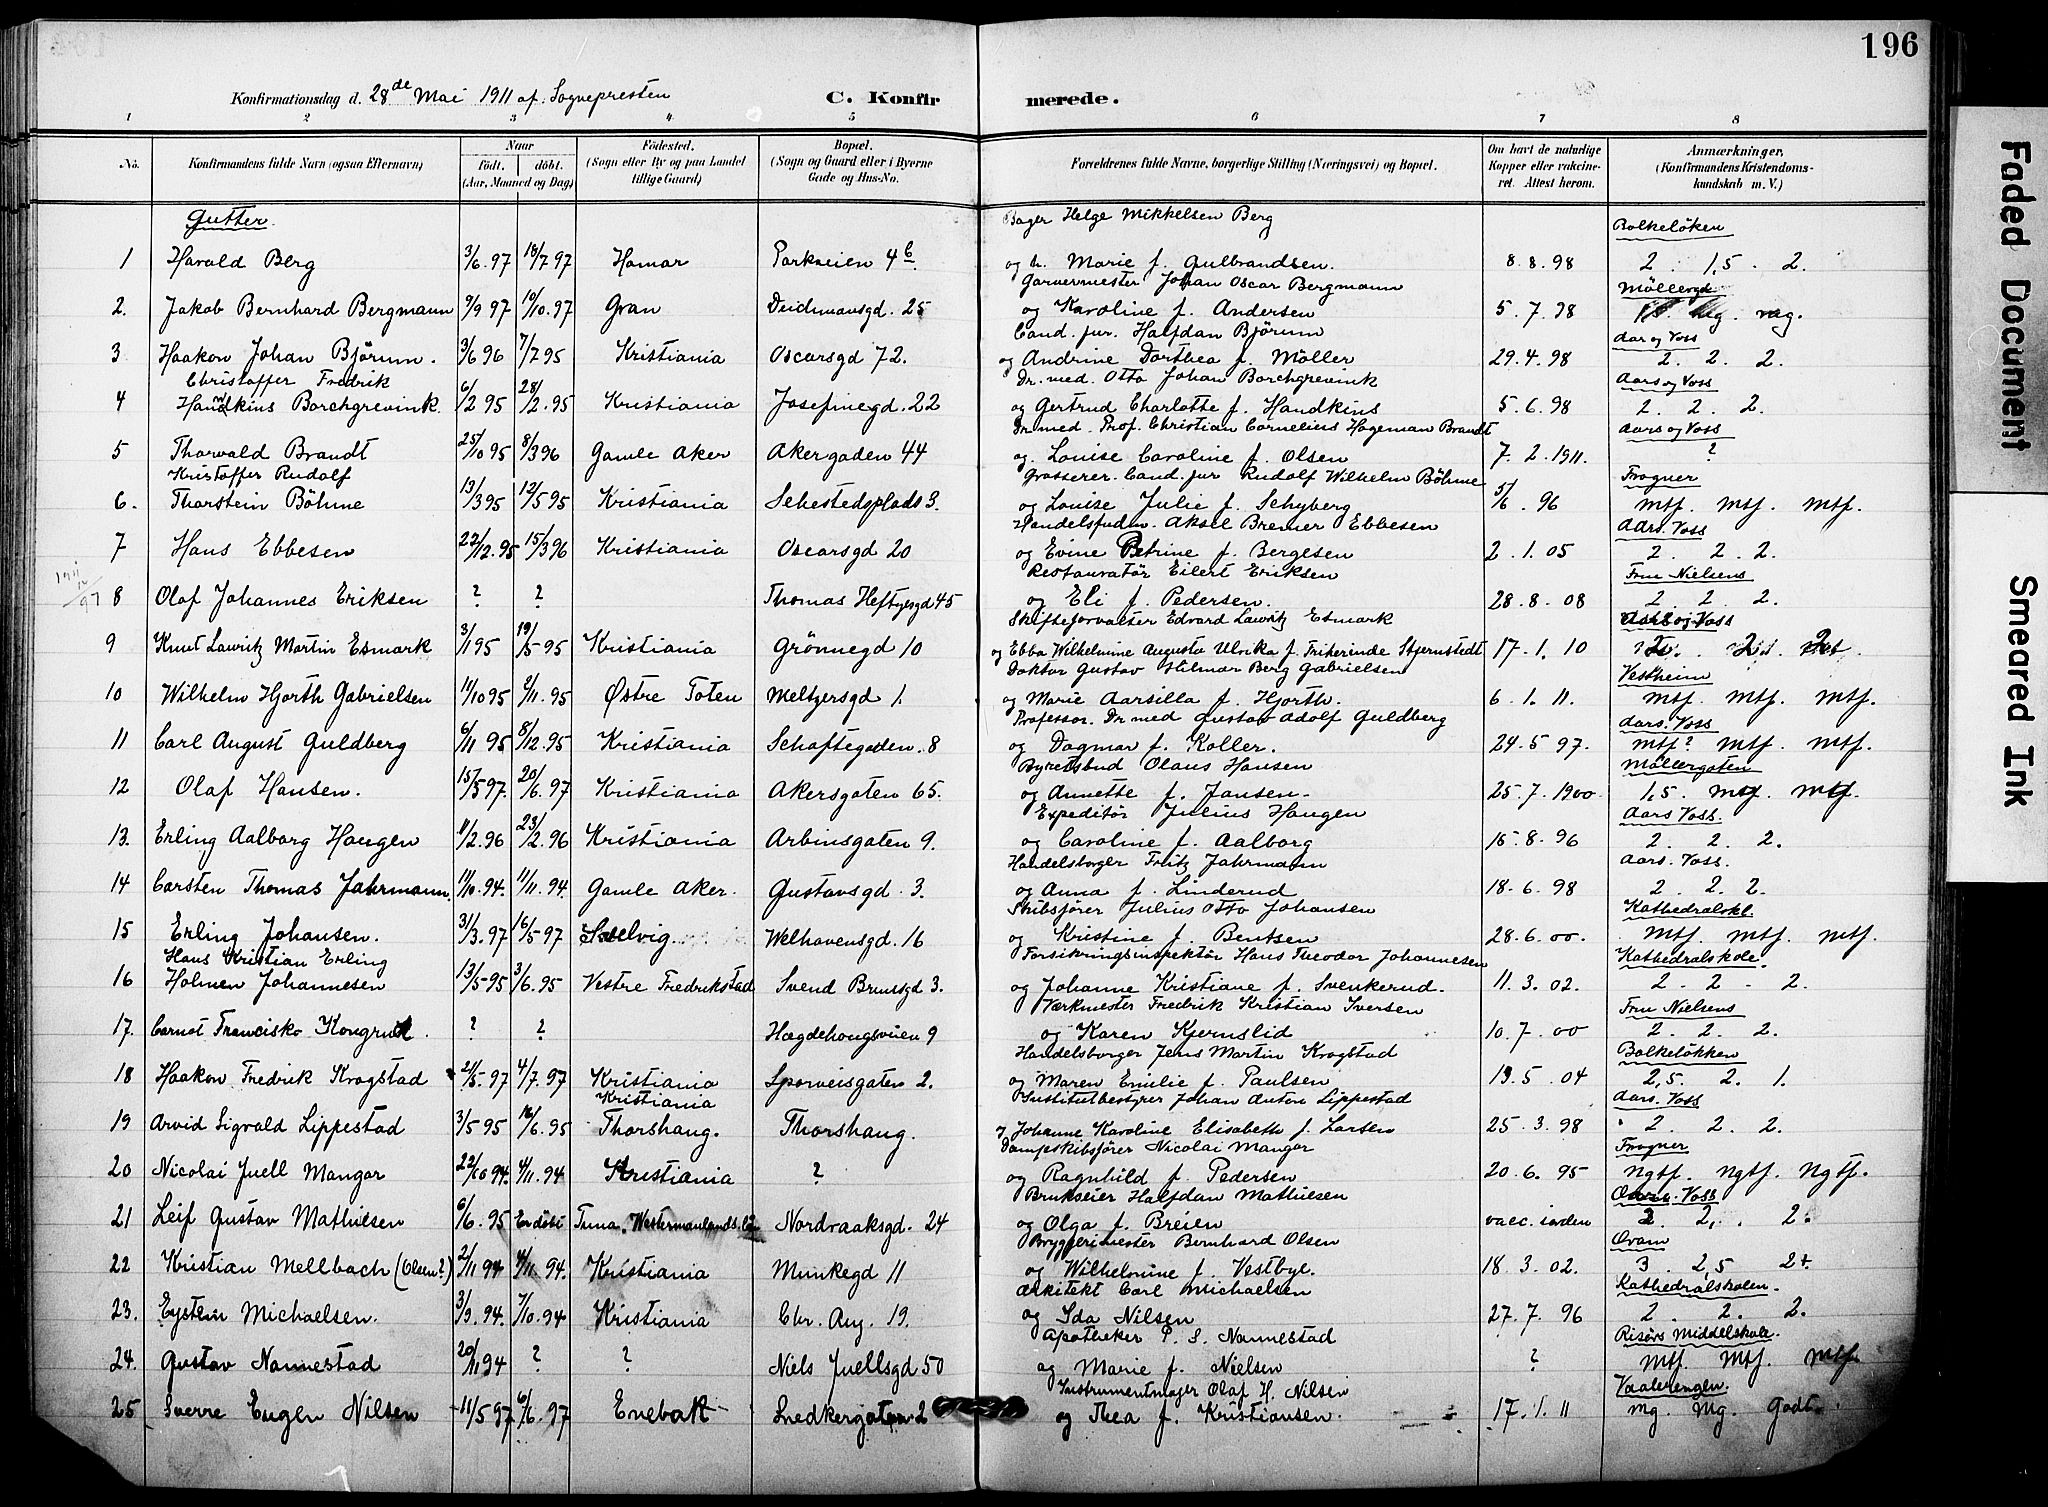 196
Konfirmationsdag d. 28de Mai 1911 af: Sognepresten C. Konfirmerede.
1 2 3 4 5 6 7 8
No. Konfirmandens fulde Navn (ogsaa Efternavn) Naar født. døbt. (Aar, Maaned og Dag) Fødested. (Sogn eller By og paa Landet tillige Gaard) Bopæl. (Sogn og Gaard eller i Byerne Gade og Hus-No. Forældrenes fulde Navne, borgerlige Stilling (Næringsvei) og Bopæl. Om havt de naturlige Kopper eller vakcineret. Attest herom. Anmærkninger, (Konfirmandens Kristendomskundskab m. V.)
Gutter. Bager Helge Mikkelsen Berg Bolkeløken
1 Harald Berg 3/6.97 18/7 97 Hamar Parkveien 4b. og h. Marie f. Gulbrandsen. 8.8.98 2. 1,5. 2.
Garvermester Johan Oscar Bergmann Möllergd.
2. Jakob Bernhard Bergmann 9/9 97 19/10.97 Gran Deichmansgd. 25 og Karoline f. Andersen 5.7.98
Cand. jur. Halfdan Bjørum Aar og Voss
3 Haakon Johan Bjørum. 3/6 96 7/7 95 Kristiania Oscarsgd 72. og Andrine Dorthea f. Møller 29.4.98 2. 2. 2.
Christoffer Fredrik Dr. med. Otto Johan Borchgrevink Aars og Voss
4 Handkins Borchgrevink. 6/2 95 28/2.95 Kristiania Josefinegd. 22 og Gertrud Charlotte f. Handkins 5.6.98 2. 2. 2.
Dr. med. Prof. Christian Cornelius Hageman Brandt Aars og Voss
5 Thorvald Brandt 25/10 95 8/3 96 Gamle Aker Akergaden 44 og. Louise Caroline f. Olsen 7.2.1911. ?
Kristoffer Rudolf Grosserer. Cand. jur Rudolf Wilhelm Böhme Frogner
6. Thorstein Böhme 13/3 95 12/5 95 Kristiania Sehestedsplads 3. og Louise Julie f. Schyberg 5/6.96 mtf. mtf. mtf.
Handelsfuldm. Aksel Bremer Ebbesen Aars. Voss
7 Hans Ebbesen 22/12.95 15/3 96 Kristiania Oscarsgd 20 og Evine Petrine f. Bergesen 2.1.05 2. 2. 2.
Restauratør Eilert Eriksen Fru Nielsens
8 Olaf Johannes Eriksen ? ? Thomas Heftyesgd 45 og Eli f. Pedersen. 28.8.08 2. 2. 2.
Skifteforvalter Edvard Lauritz Esmark
9 Knut Lauritz Martin Esmark 3/1 95 19/5 95 Kristiania Grønnegd 10 og Ebba Wilhelmine Augusta Ulrika f. Friherinde Stjernstedt 17.1.10
Doktor Gustav Hilmar Berg Gabrielsen Vestheim
10 Wilhelm Hjorth Gabrielsen 11/10 95 2/11.95 Østre Toten Meltzersgd 1. og Marie Aarsilla f. Hjorth. 6.1.11. mtf. mtf. mtf.
Professor. Dr. med Gustav Adolf Guldberg Aars. Voss
11 Carl August Guldberg 6/11 95 8/12.95 Kristiania Schaftegaden. 8 og Dagmar f. Koller. 24.5 97. mtf? mtf. mtf.
Byretsbud Olaus Hansen Møllergaten
12 Olaf Hansen. 15/5 97. 20/6.97 Kristiania Akersgaten 65. og Annette f. Jansen. 25.7.1900 1,5. mtf. mtf.
Expeditør Julius Haugen Aars Voss.
13. Erling Aalborg Haugen 11/2.96 23/2.96 Kristiania Arbinsgaten 9. og Caroline f. Aalborg 15.8.96 2. 2. 2.
Handelsborger Fritz Jahrmann Aars. Voss.
14 Carsten Thomas Jahrmann. 14/10.94. 11/11.94. Gamle Aker. Gustavsgd. 3. og Anna f. Linderud 18.6.98 2. 2. 2.
Skibsfører Julius Otto Johansen Kathedralskl.
15 Erling Johansen. 31/3.97 16/5 97 Svelvig Welhavensgd. 16 og Kristine f. Bentsen 28.6.00. mtf. mtf. mtf.
Hans Kristian Erling Forsikringsinspektør Hans Theodor Johannesen Kathedralskole.
16 Holmen Johannesen 13/5 95 3/6.95 Vestre Fredrikstad Svend Brunsgd 3. og Johanne Kristiane f. Svenkerud. 11.3.02. 2. 2. 2.
Værkmester Fredrik Kristian Iversen Fru Nielsens
17. Carnot Francisko Kongrud. ? ? Hægdehougsveien 9 og Karen Kjernslid 10.7.00 2. 2. 2.
Handelsborger Jens Martin Krogstad Bolkeløkken
18 Haakon Fredrik Krogstad 2/5.97 4/7.97 Kristiania Sporveisgaten 2. og Maren Emilie f. Paulsen 13.5.04 2,5. 2. 1.
Kristiania Institutbestyrer Johan Anton Lippestad Aars. Voss
19 Arvid Sigvald Lippestad 3/5 95 16/6.95 Thorshaug. Thorshaug. og Johanne Karoline Elisabeth f. Larsen 25.3.98 2. 2. 2.
Dampskibsfører Nicolai Mangor Frogner
20 Nicolai Juell Mangor 22/10 94. 4/11.94 Kristiania ? og Ragnhild f. Pedersen 20.6.95 Ngtf. Ngtf. Ngtf.
Brukseier Halfdan Mathiesen
21 Leif Gustav Mathiesen 6/6.95 Er døbt Tuna. Westermanlands län Nordraaksgd. 24 og Olga f. Breien vacc. iorden 2. 2. 2.
Bryggerimester Bernhard Olsen Qvam
22 Kristian Mellbach (Olsen?) 2/11 94 4/11.94. Kristiania Munkegd 11 og Wilhelmine f. Vestbye. 18.3.02. 3. 2,5 2+
Arkitekt Carl Michaelsen Kathedralskolen.
23. Eystein Michaelsen. 3/9.94. 7/10.94 Kristiania Chr. Aug. 19. og Ida Nilsen 27.7.96 2. 2. 2.
Apotheker P. S. Nannestad Risørs Middelskole.
24. Gustav Nannestad 20/11 94 ? ? Niels Juellsgd 50 og Marie f. Nielsen ? mtf. mtf. mtf.
Instrumentmager Olaf H. Nilsen Vaalerengen.
25 Sverre Eugen Nilsen 11/5 97 6/6.97 Enebak Snedkergaten 2 og Thea f. Kristiansen. 17.1.11 mg. mg. Godt.
Faded Document
Smeared Ink